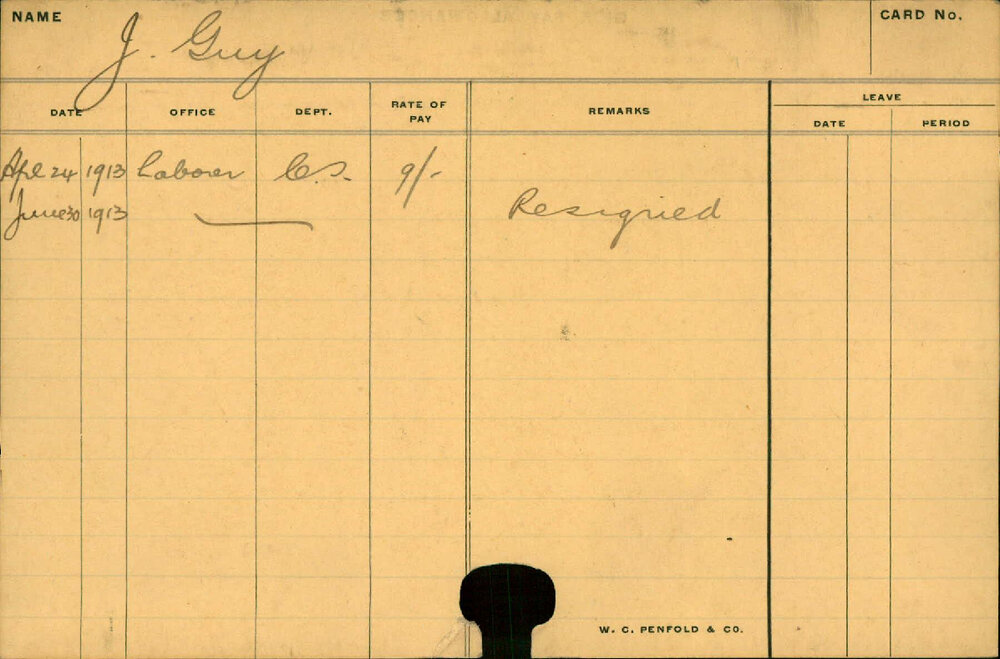 NAME J. Guy CARD No.
DATE OFFICE DEPT. RATE OF PAY REMARKS LEAVE
DATE PERIOD
Apl 24 1913 Laborer C.S. 9/-
June 30 1913 Resigned
W. C. PENFOLD & CO.